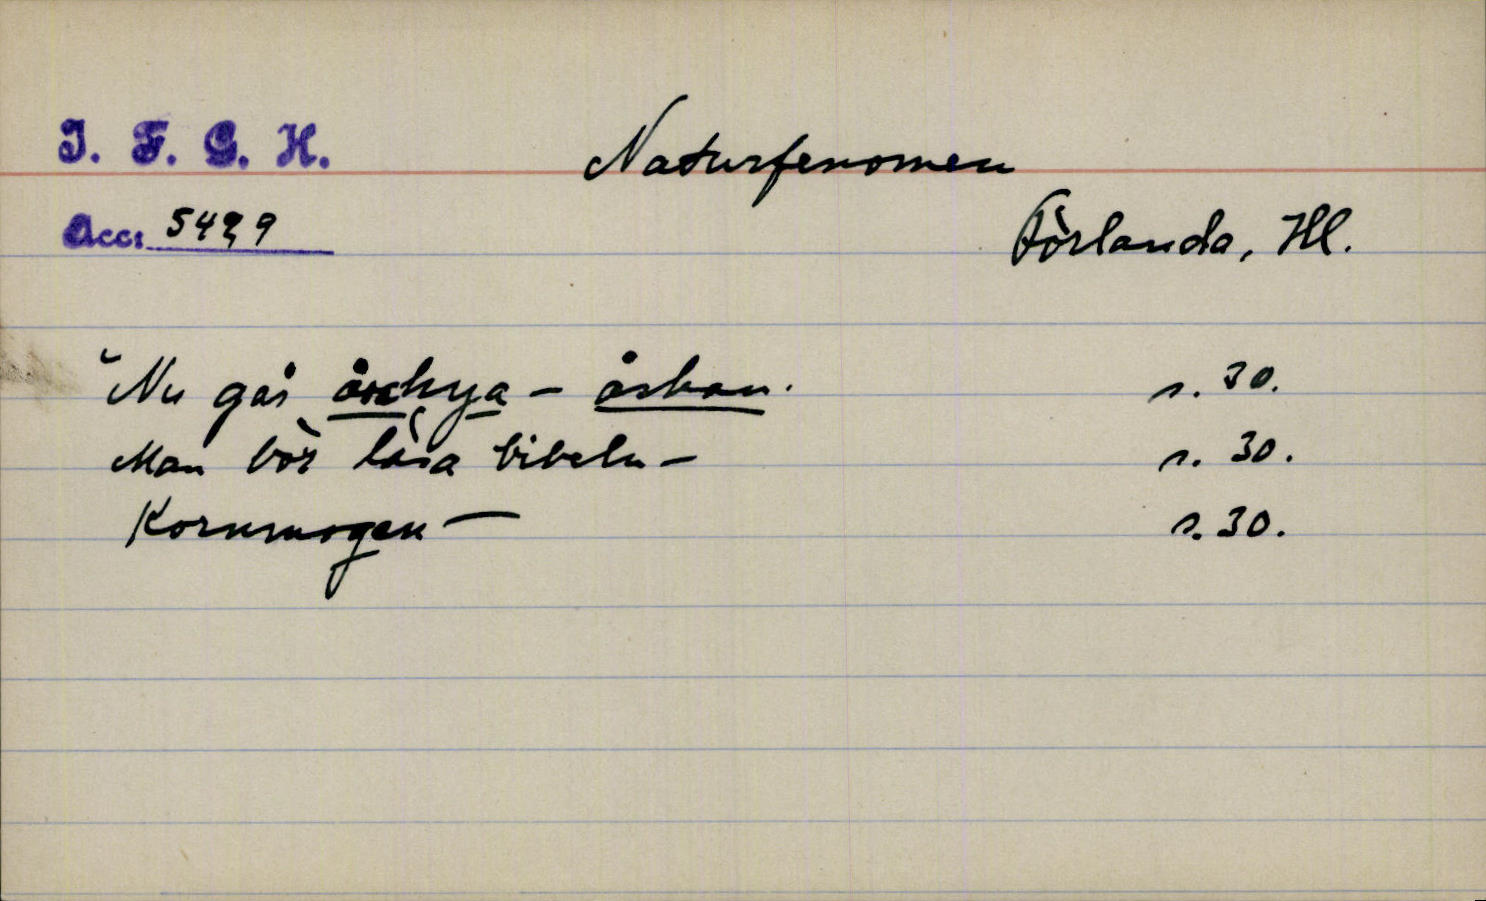 I. F. G. H.
Naturfenomen
Acc: 5429
Förlanda, Hl.
"Nu går åskya – åskan.
s. 30.
Man bör läsa bibeln –
s. 30.
Kornmogen –
s. 30.